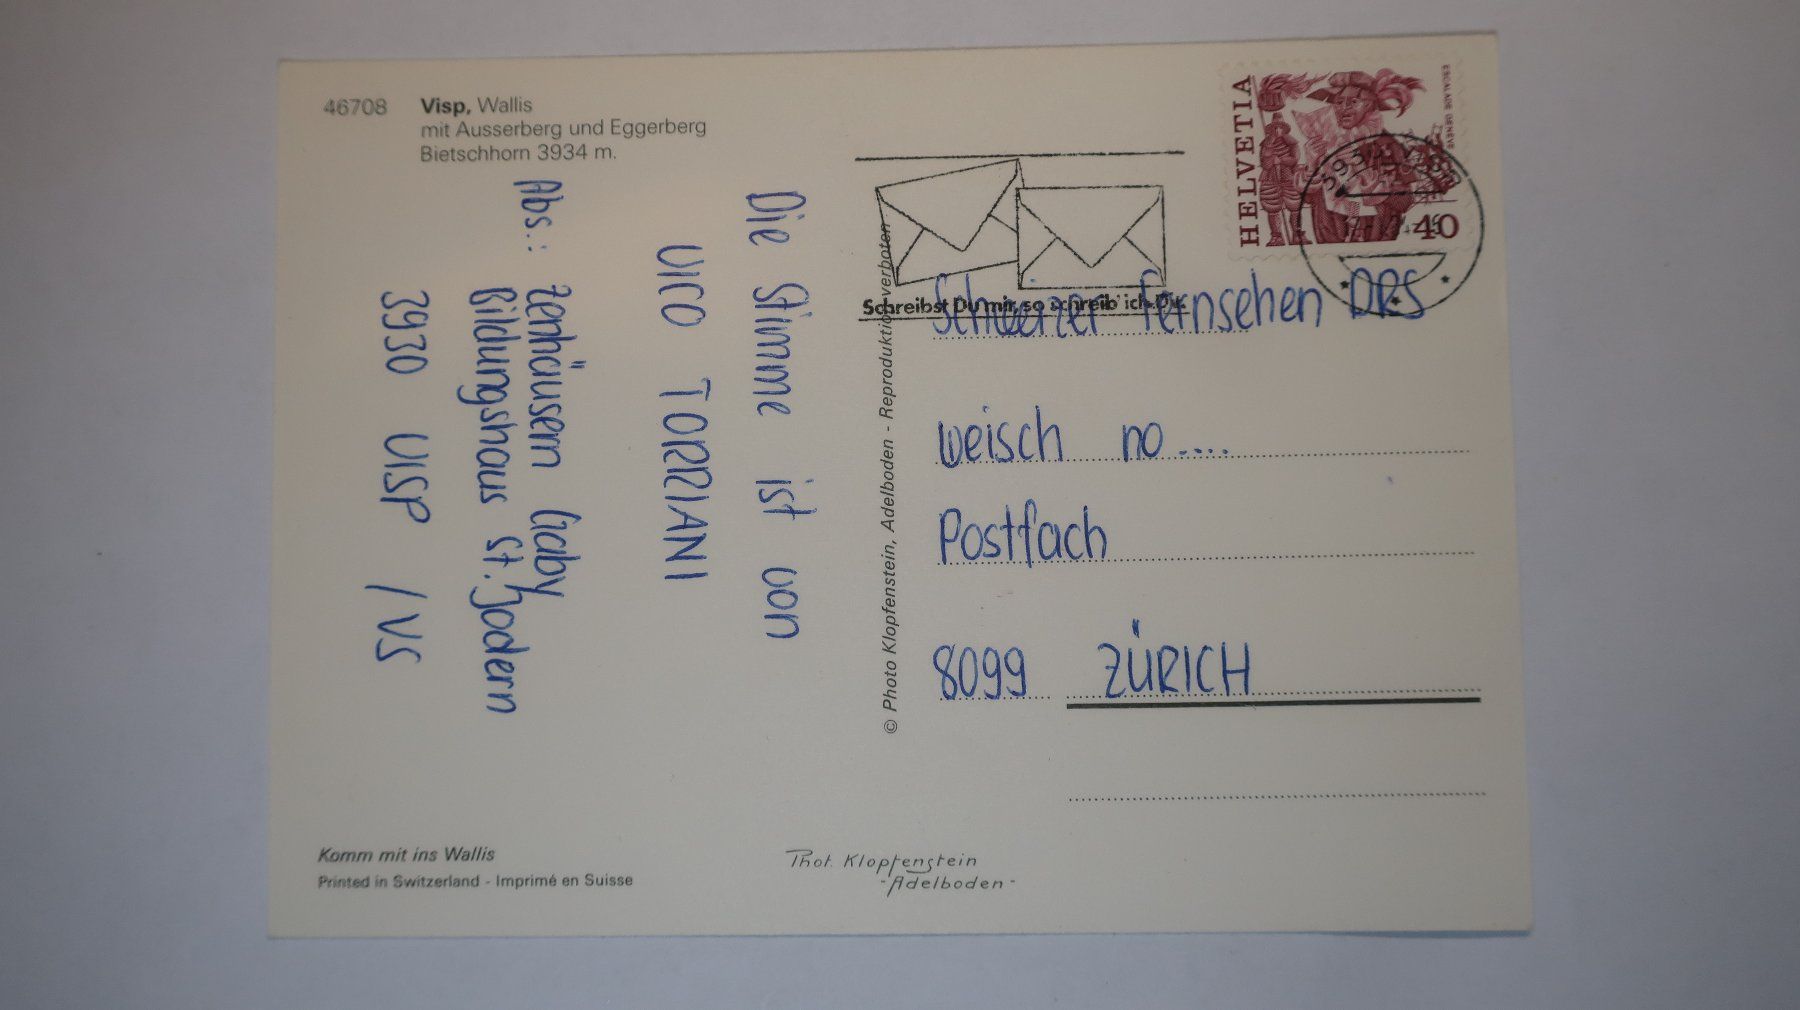 46708 Visp, Wallis
mit Ausserberg und Eggerberg
Bietschhorn 3934 m.
Die Stimme ist von
VICO TORRIANI
Abs.: Zenhäusern Gaby
Bildungshaus St. Jodern
3930 VISP / VS
© Photo Klopfenstein, Adelboden - Reproduktion verboten
Schreibst Du mir, so schreib' ich Dir.
HELVETIA
ESCALADE GENEVE
40
3930 VISP
Schweizer Fernsehen DRS
weisch no....
Postfach
8099 ZÜRICH
Komm mit ins Wallis
Printed in Switzerland - Imprimé en Suisse
Phot. Klopfenstein
- Adelboden -